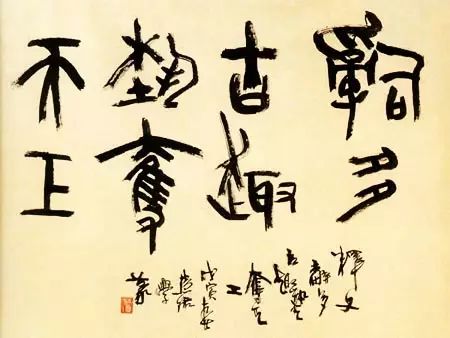 辭多
古趣
藝奪
天工
釋文
辭多
古趣藝
奪天
工
戊寅
學
篆